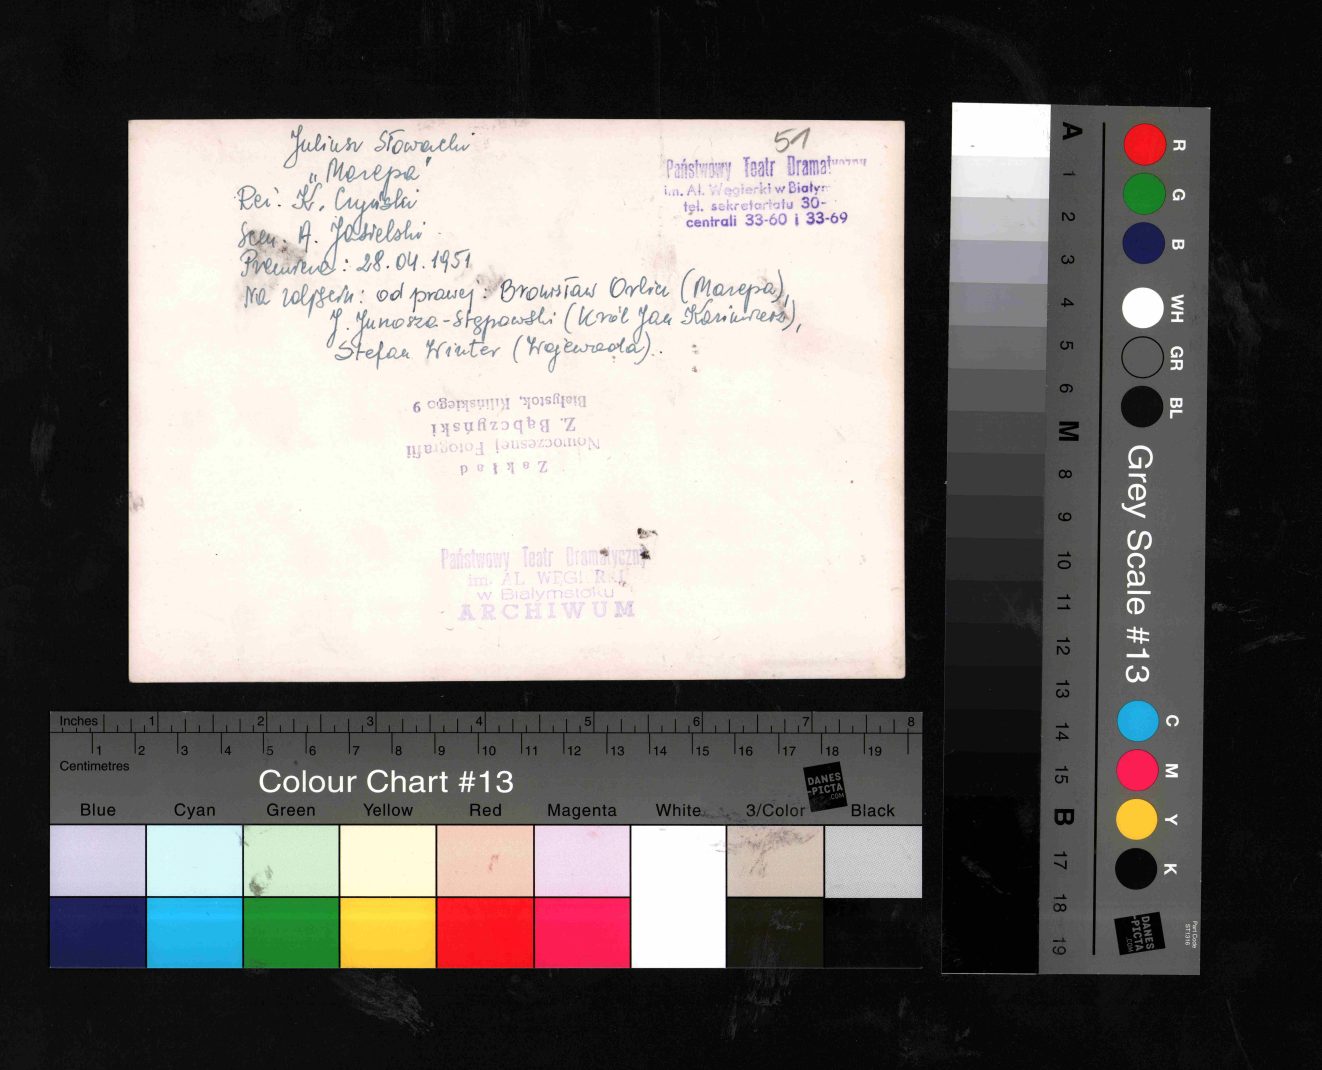 51
Juliusz Słowacki
"Mazepa"
Reż. K. Czyński
Scen. A. Jasielski
Premiera: 28.04.1951
Na zdjęciu: od prawej: Bronisław Orlicz (Mazepa),
J. Junosza-Stępowski (Król Jan Kazimierz),
Stefan Winter (Wojewoda).
Państwowy Teatr Dramatyczny
im. Al. Węgierki w Białym
tel. sekretariatu 30-
centrali 33-60 i 33-69
Zakład
Nowoczesnej Fotografii
Z. Bąbczyński
Białystok, Kilińskiego 9
Państwowy Teatr Dramatyczny
im. AL. WĘGI R I
w Białymstoku
ARCHIWUM
Inches 1 2 3 4 5 6 7 8
1 2 3 4 5 6 7 8 9 10 11 12 13 14 15 16 17 18 19
Centimetres
Colour Chart #13
DANES
-PICTA
.COM
Blue Cyan Green Yellow Red Magenta White 3/Color Black
A 1 2 3 4 5 6 M 8 9 10 11 12 13 14 15 B 17 18 19
R G B WH GR BL Grey Scale #13 C M Y K
DANES
-PICTA
.COM
Part Code
ST1316